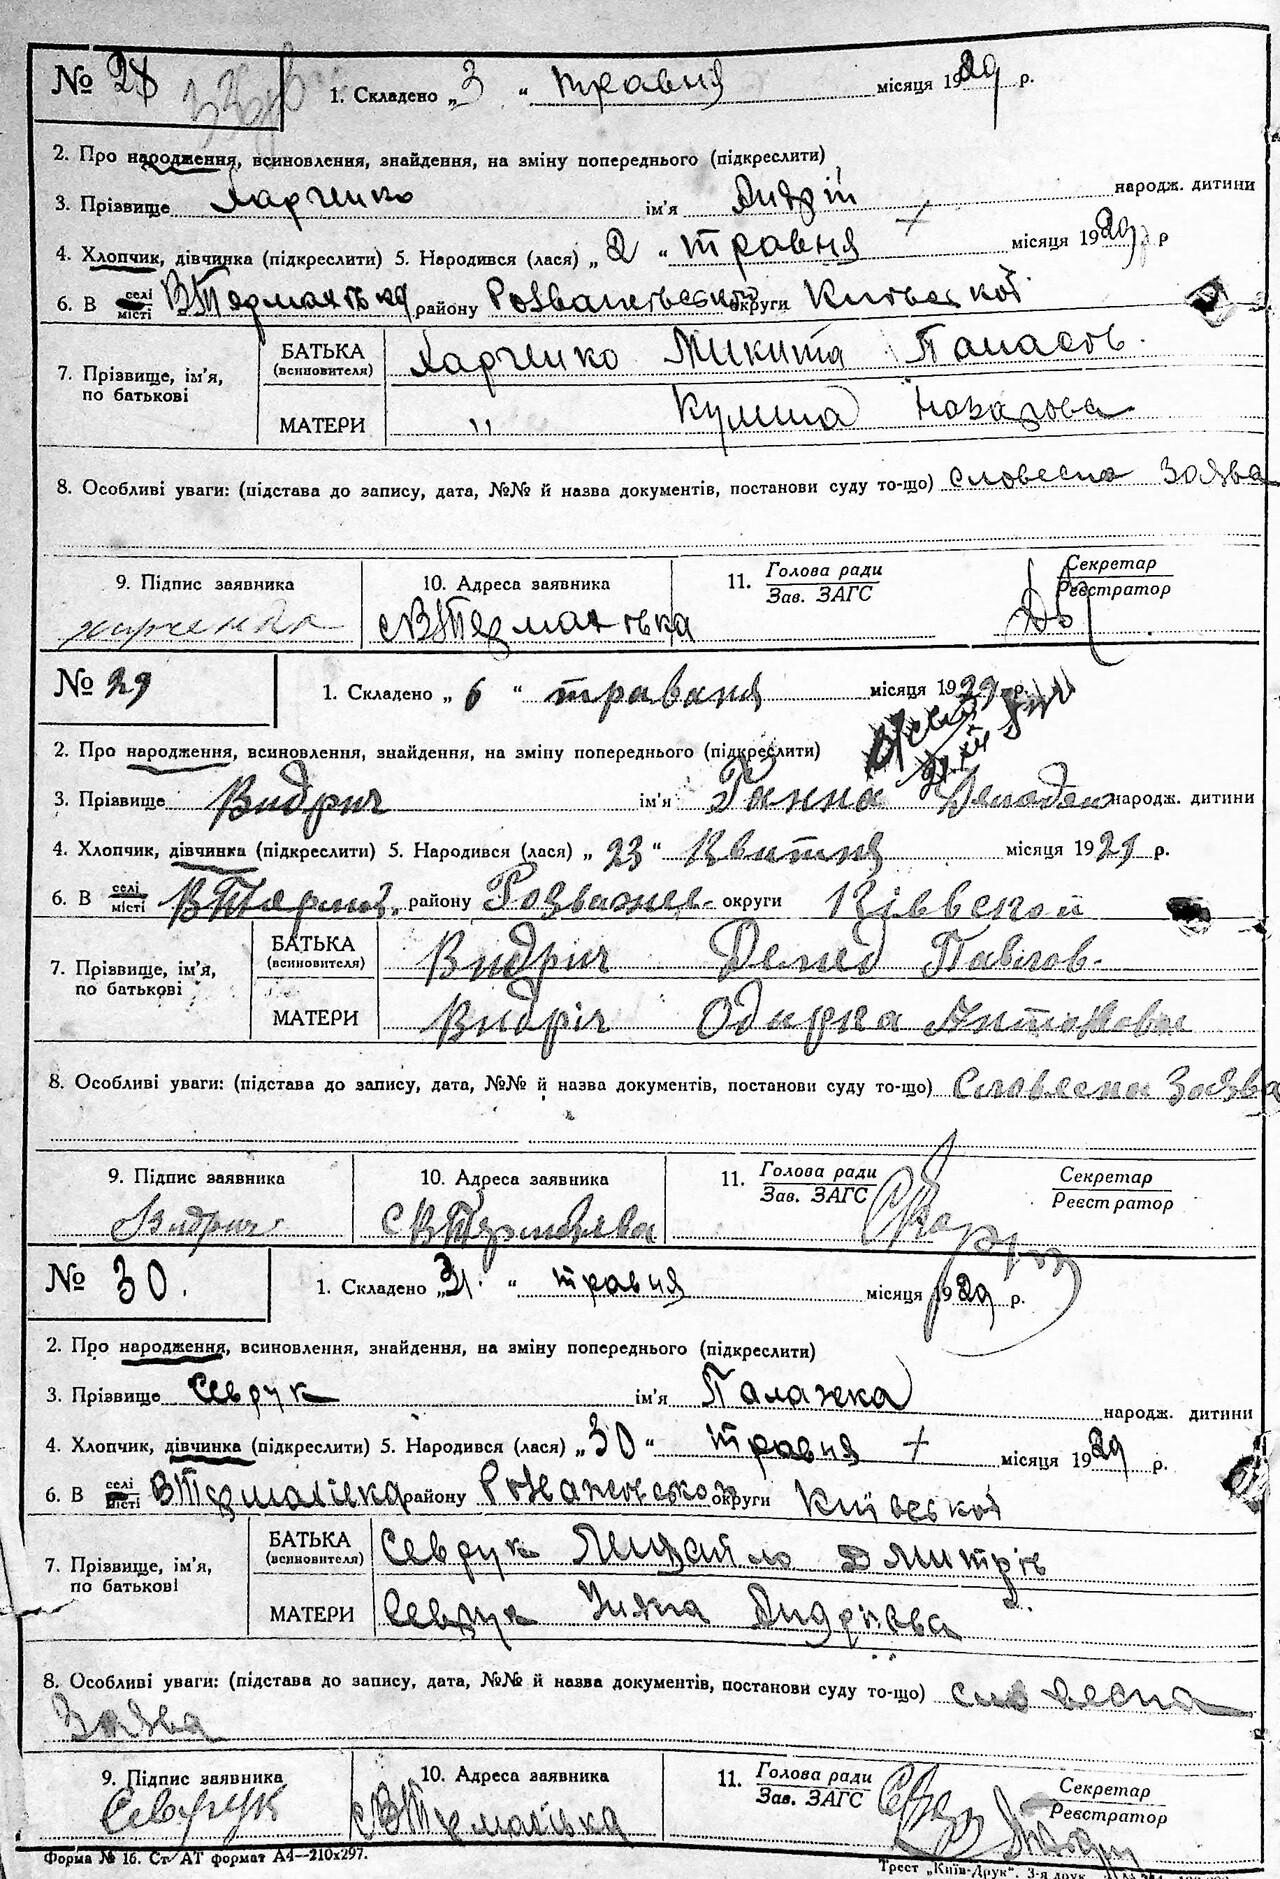 № 28
1. Складено „ 3 “ травня місяця 1929 р.
2. Про народження, всиновлення, знайдення, на зміну попереднього (підкреслити)
3. Прізвище Харченко ім'я Андрій народж. дитини
4. Хлопчик, дівчинка (підкреслити) 5. Народився (лася) „ 2 “ травня місяця 1929 р
6. В селі місті району округи Київської
7. Прізвище, ім'я, по батькові
БАТЬКА (всиновителя) Харченко Микита Панасов.
МАТЕРИ " Назарова
8. Особливі уваги: (підстава до запису, дата, №№ й назва документів, постанови суду то-що) словесна заява
9. Підпис заявника 10. Адреса заявника 11. Голова ради Зав. ЗАГС Секретар Реєстратор
харченко
№ 29
1. Складено „ 6 “ траваня місяця 1929 р.
2. Про народження, всиновлення, знайдення, на зміну попереднього (підкреслити)
3. Прізвище Видрич ім'я Ганна народж. дитини
4. Хлопчик, дівчинка (підкреслити) 5. Народився (лася) „ 23 “ Квитня місяця 1929 р.
6. В селі місті району Розважев- округи
7. Прізвище, ім'я, по батькові
БАТЬКА (всиновителя) Видрич Демед Павлов-
МАТЕРИ Видріч Одарка Антонова
8. Особливі уваги: (підстава до запису, дата, №№ й назва документів, постанови суду то-що) Словесна Заява
9. Підпис заявника 10. Адреса заявника 11. Голова ради Зав. ЗАГС Секретар Реєстратор
Видрич
№ 30.
1. Складено „ 31. “ травня місяця 1929 р.
2. Про народження, всиновлення, знайдення, на зміну попереднього (підкреслити)
3. Прізвище Севрук ім'я Палажка народж. дитини
4. Хлопчик, дівчинка (підкреслити) 5. Народився (лася) „ 30 “ травня місяця 1929 р.
6. В селі місті району округи Київської
7. Прізвище, ім'я, по батькові
БАТЬКА (всиновителя) Севрук Михайло Дмитрів
МАТЕРИ Севрук Андріева
8. Особливі уваги: (підстава до запису, дата, №№ й назва документів, постанови суду то-що) словесна
Заява
9. Підпис заявника 10. Адреса заявника 11. Голова ради Зав. ЗАГС Секретар Реєстратор
Севрук
Форма № 16. Ст. АТ формат А4—210х297.
Трест „Київ-Друк“. 3-я друк.